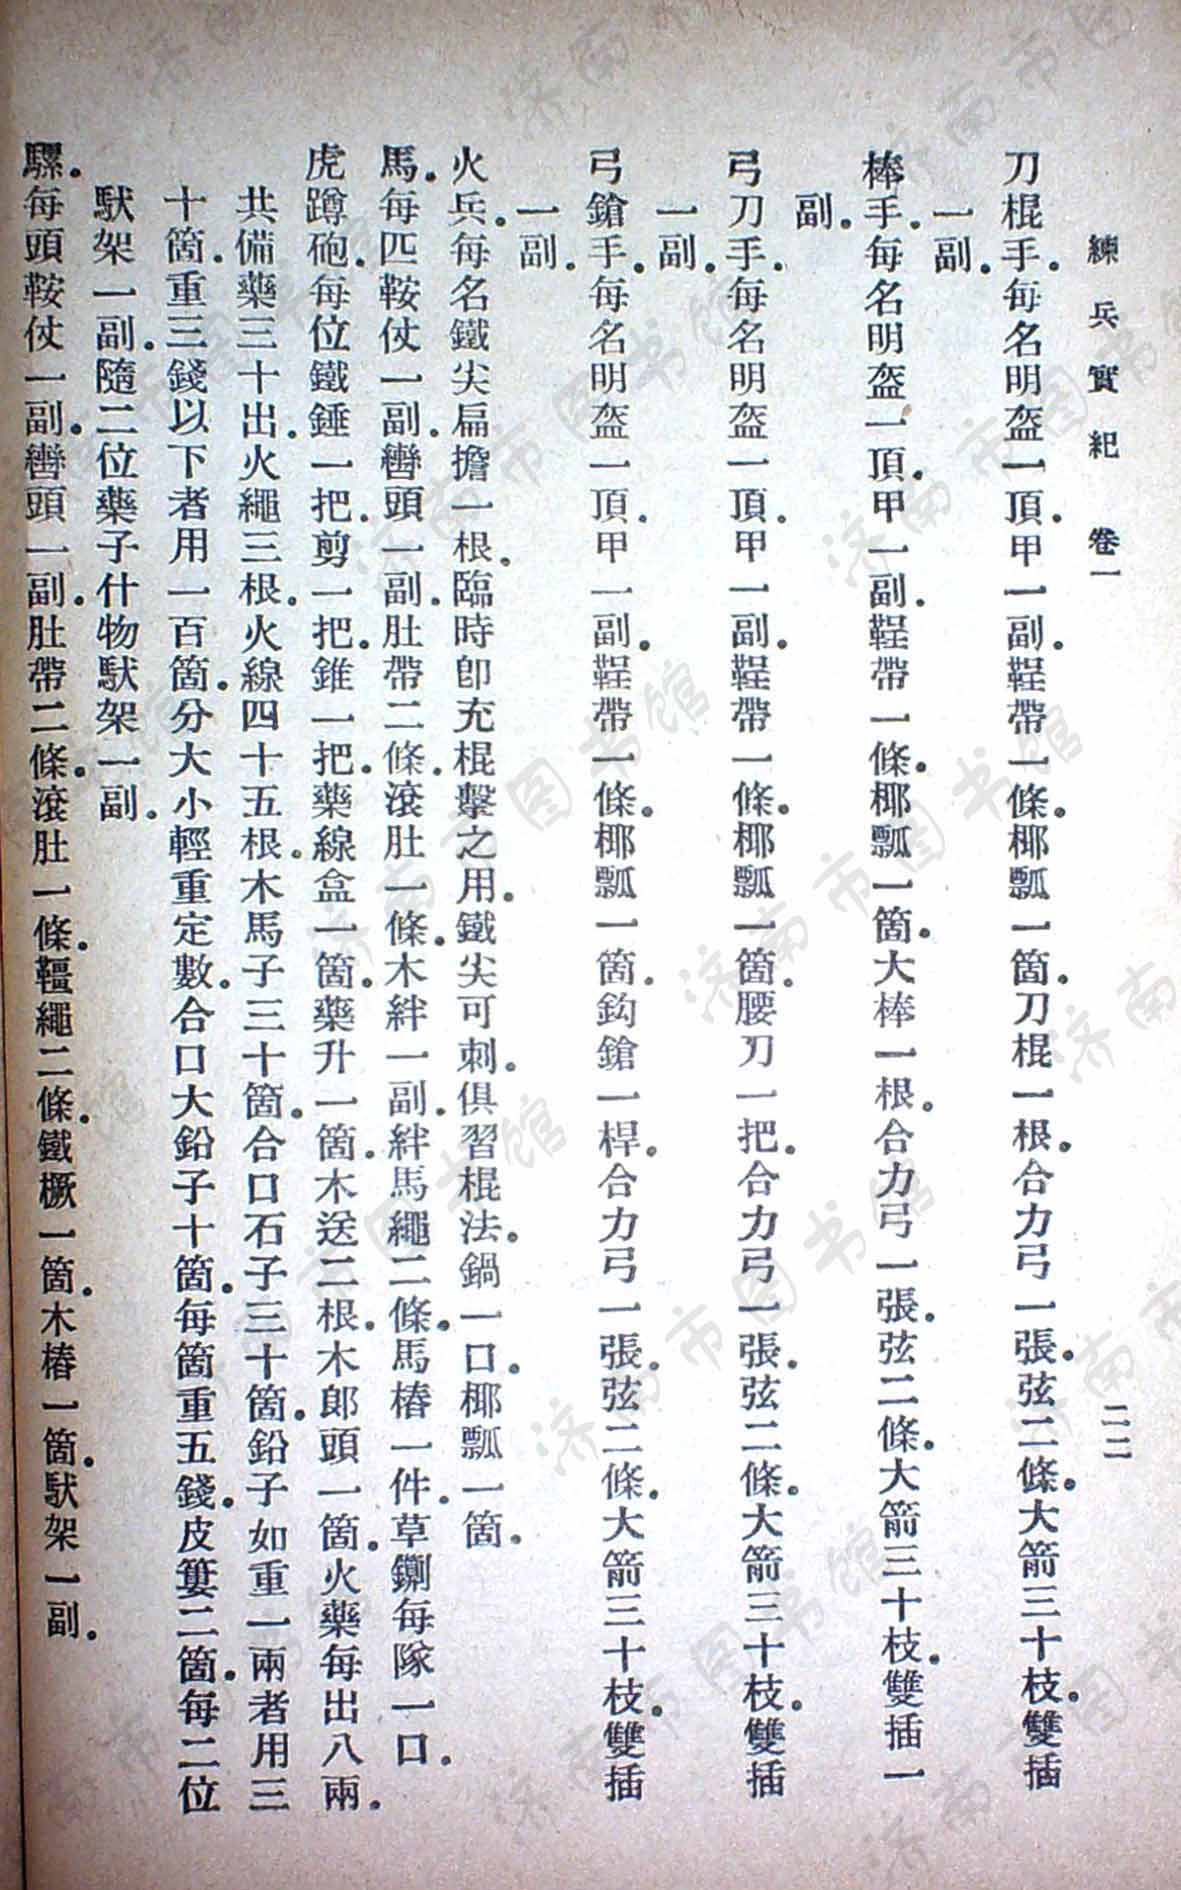 練兵實紀 卷一 二二
刀棍手。每名明盔一頂。甲一副。鞓帶一條。椰瓢一箇。刀棍一根。合力弓一張。弦二條。大箭三十枝。雙插
一副。
棒手。每名明盔一頂。甲一副。鞓帶一條。椰瓢一箇。大棒一根。合力弓一張。弦二條。大箭三十枝。雙插一
副。
弓刀手。每名明盔一頂。甲一副。鞓帶一條。椰瓢一箇。腰刀一把。合力弓一張。弦二條。大箭三十枝。雙插
一副。
弓鎗手。每名明盔一頂。甲一副。鞓帶一條。椰瓢一箇。鈎鎗一桿。合力弓一張。弦二條。大箭三十枝。雙插
一副。
火兵。每名鐵尖扁擔一根。臨時卽充棍擊之用。鐵尖可刺。俱習棍法。鍋一口。椰瓢一箇。
馬。每匹鞍仗一副。轡頭一副。肚帶二條。滾肚一條。木絆一副。絆馬繩二條。馬樁一件。草鍘每隊一口。
虎蹲砲。每位鐵錘一把。剪一把。錐一把。藥線盒一箇。藥升一箇。木送二根。木郎頭一箇。火藥每出八兩。
共備藥三十出。火繩三根。火線四十五根。木馬子三十箇。合口石子三十箇。鉛子如重一兩者用三
十箇。重三錢以下者用一百箇。分大小輕重定數。合口大鉛子十箇。每箇重五錢。皮簍二箇。每二位
馱架一副。隨二位藥子什物馱架一副。
騾。每頭鞍仗一副。轡頭一副。肚帶二條。滾肚一條。韁繩二條。鐵橛一箇。木樁一箇。馱架一副。
济南市图书馆